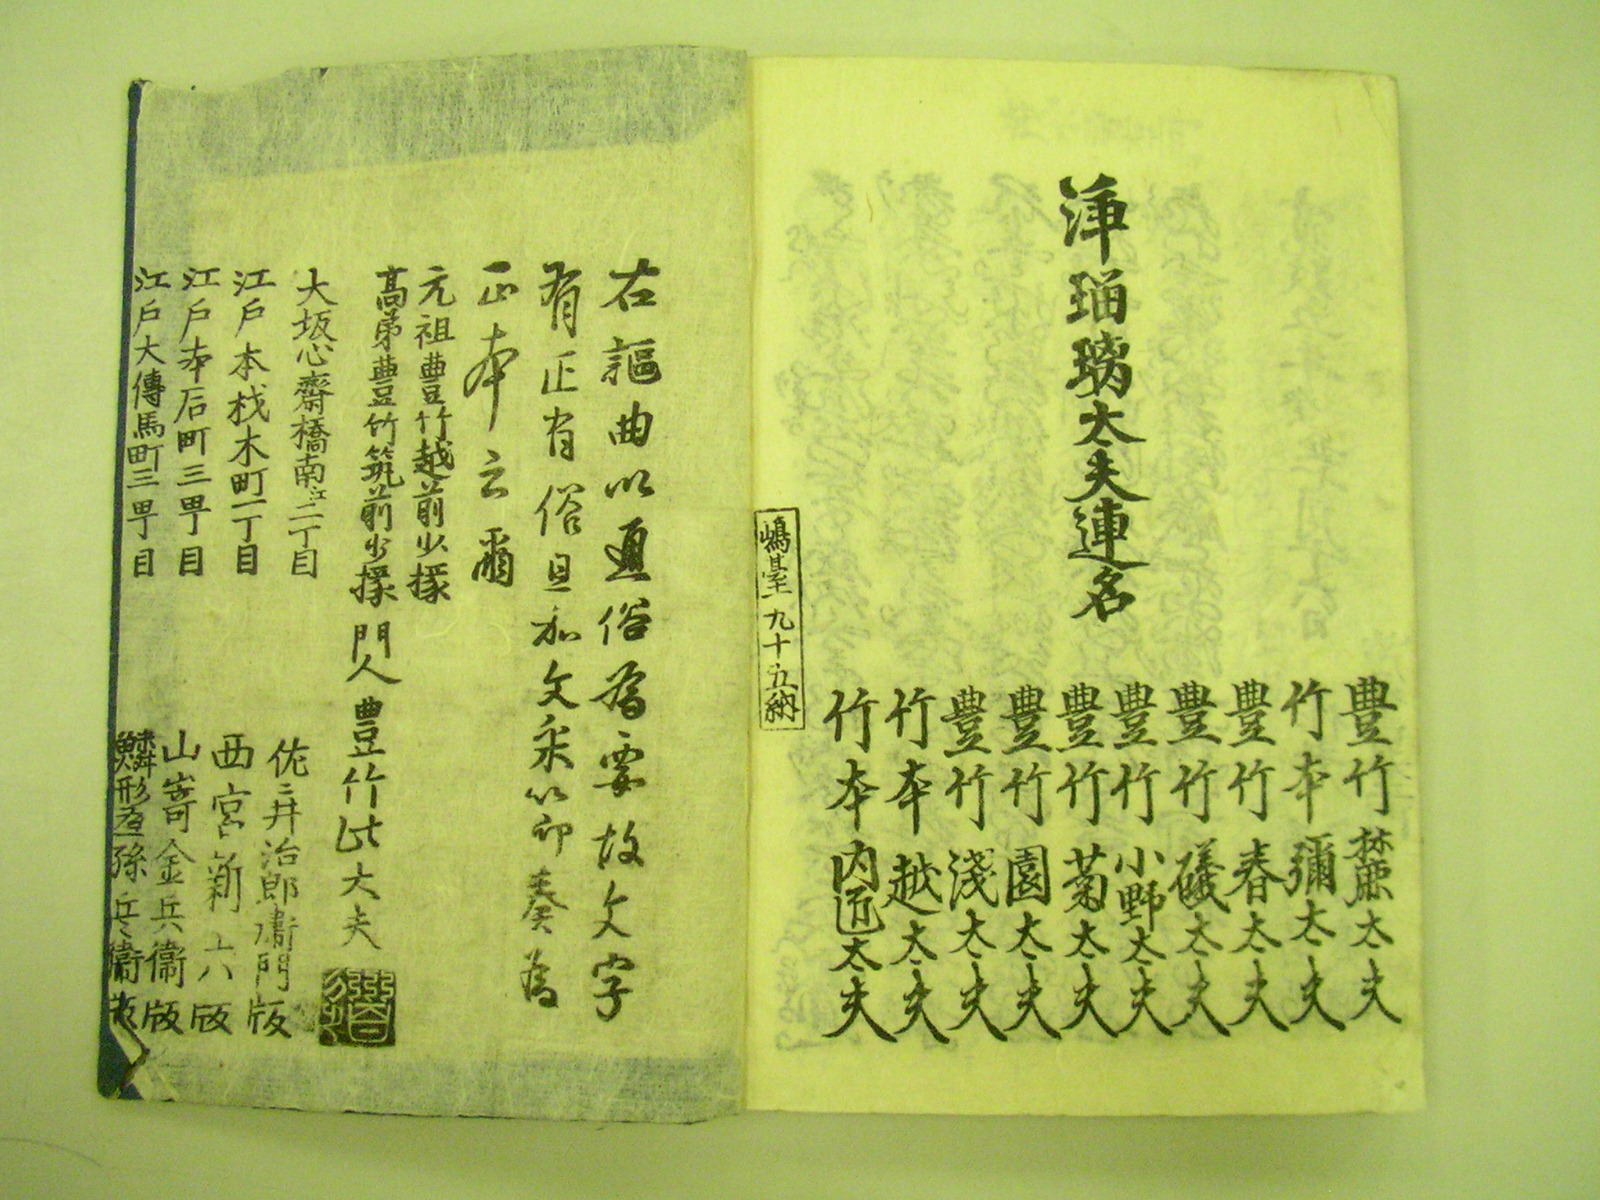 浄瑠璃太夫連名
豊竹麓太夫
竹本彌太夫
豊竹春太夫
豊竹磯太夫
豊竹小野太夫
豊竹菊太夫
豊竹園太夫
豊竹淺太夫
竹本越太夫
竹本内匠太夫
嶋臺一九十五納
右謳曲以通俗為要故文字
有正有俗且加文采節奏為
正本云爾
元祖豊竹越前少掾
高弟豊竹筑前少掾
門人豊竹此大夫
大坂心齋橋南江二丁目
佐々井治郎右衛門版
江戸本材木町一丁目
西宮新六版
江戸本石町三町目
山嵜金兵衛版
江戸大傳馬町三町目
鱗形屋孫兵衛版